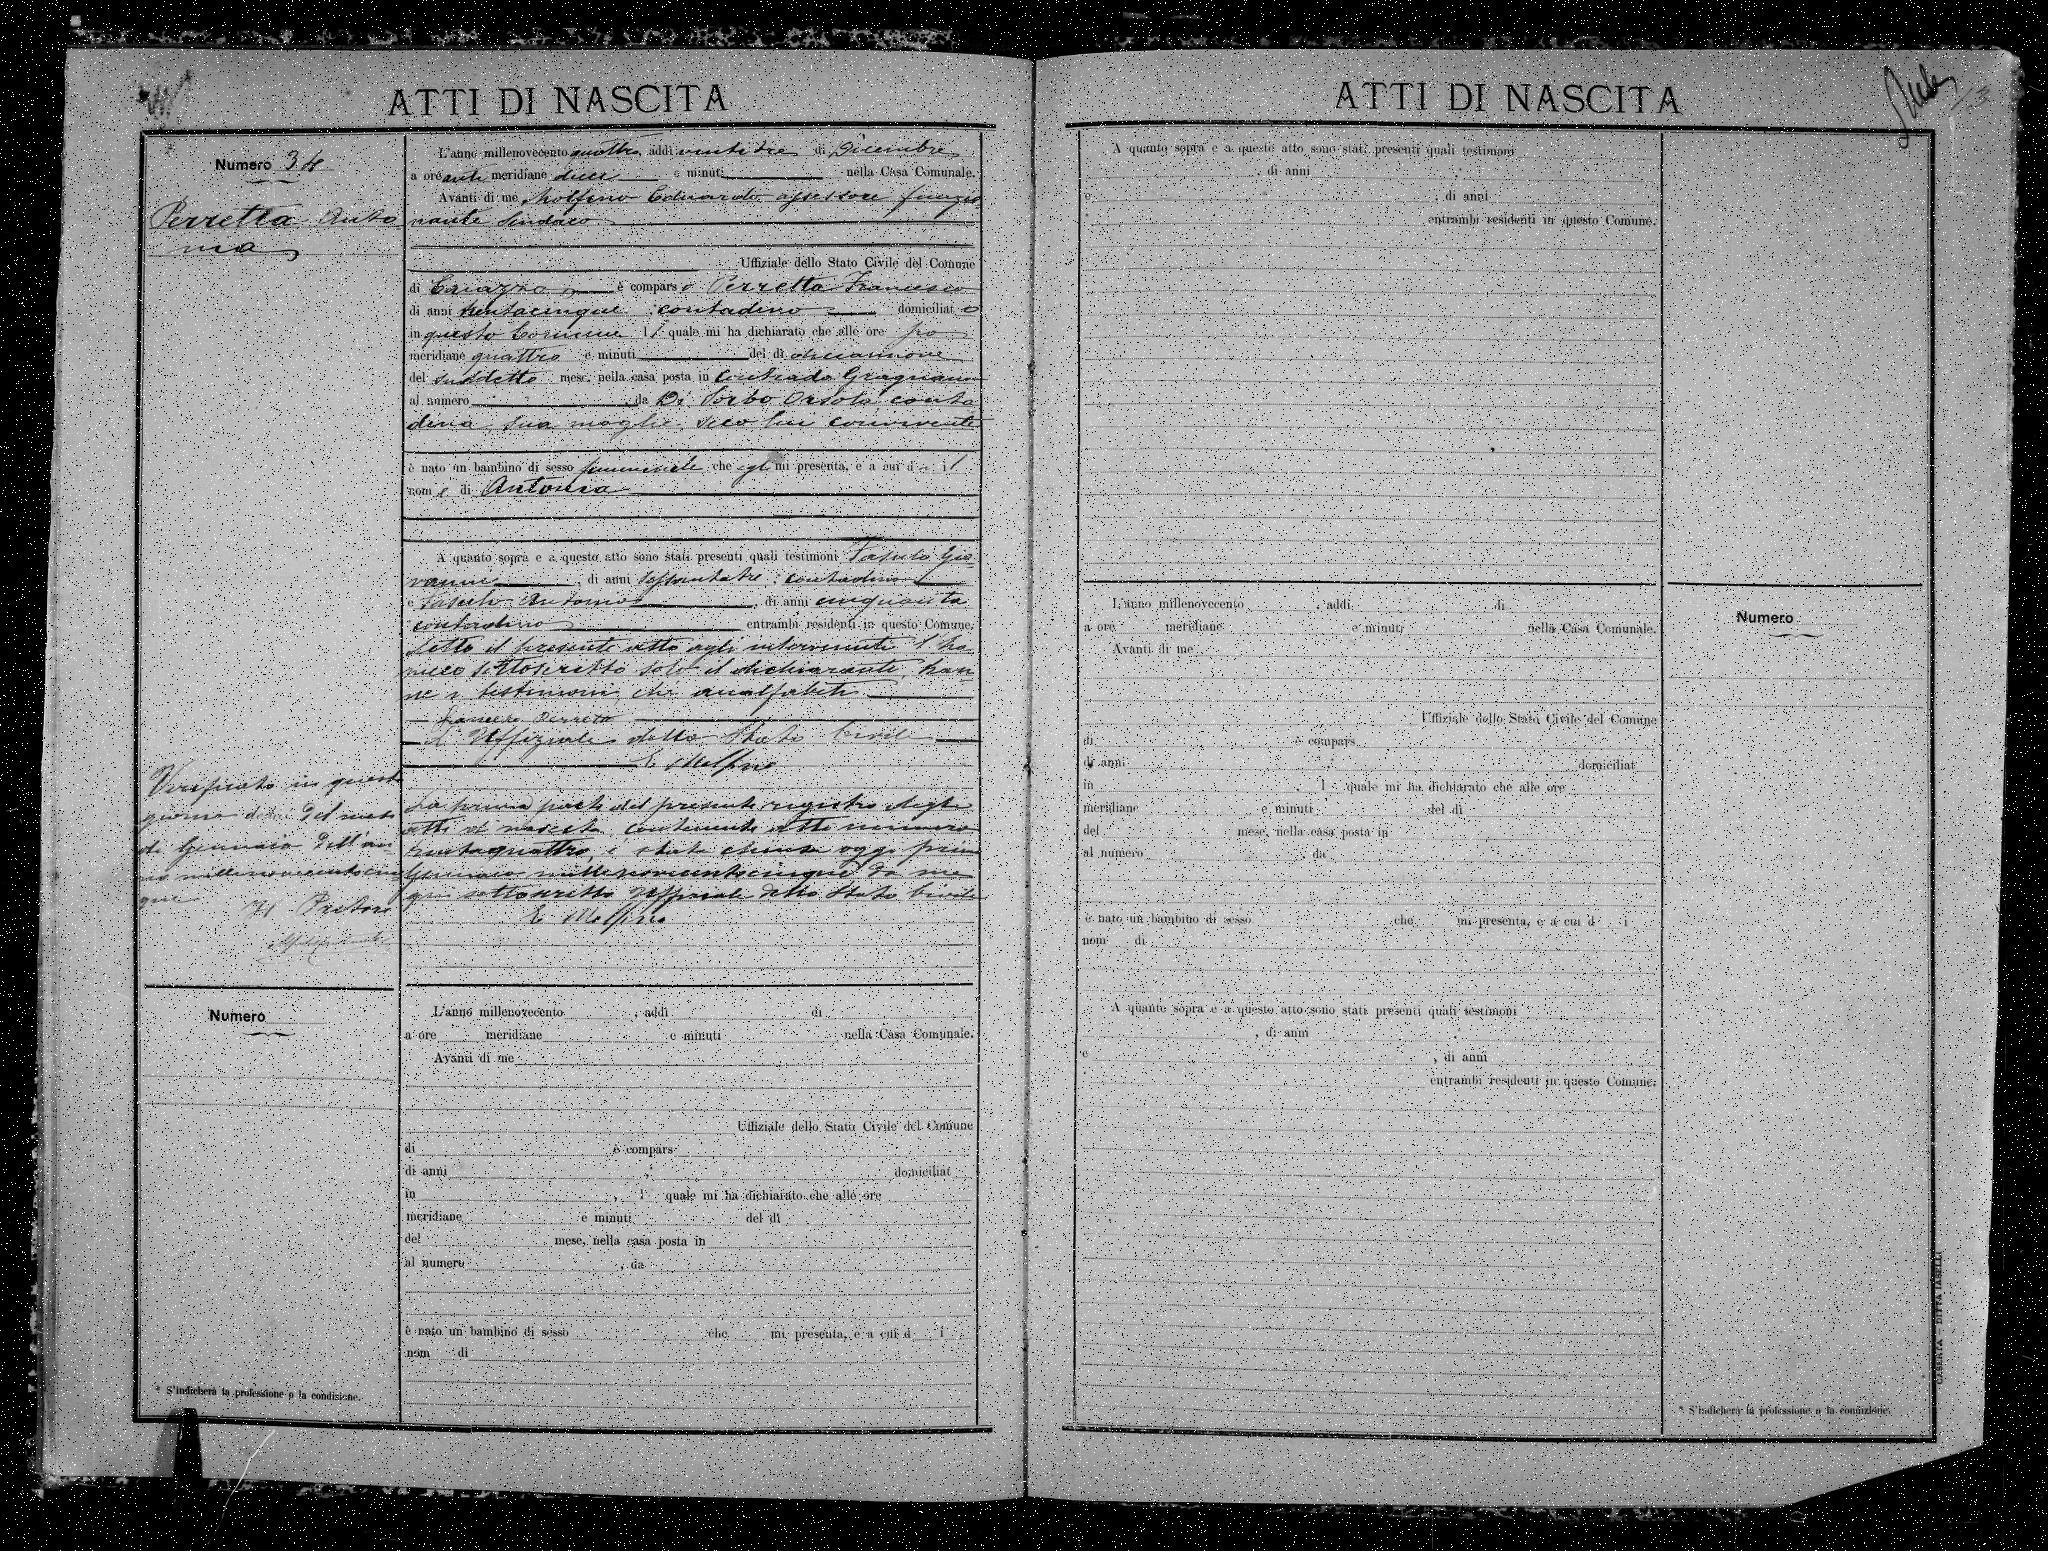 ATTI DI NASCITA
Numero 34
Perretta Anto
nia
L'anno millenovecento quattro, addì ventitre di Dicembre
a ore anti meridiane dieci e minuti nella Casa Comunale.
Avanti di me Molfino Eduardo assessore funzio
nante Sindaco
Uffiziale dello Stato Civile del Comune
di Caiazzo è comparso Perretta Francesco
di anni trentacinque contadino domiciliato
in questo Comune il quale mi ha dichiarato che alle ore po
meridiane quattro e minuti del dì diciannove
del suddetto mese, nella casa posta in Contrada Gragnano
al numero da Di Sorbo Orsola conta
dina, sua moglie, seco lui convivente
è nato un bambino di sesso femminile che egli mi presenta, e a cui dà il
nome di Antonia
A quanto sopra e a questo atto sono stati presenti quali testimoni Fasulo Gio
vanni, di anni sessantatre, contadino
e Fasulo Antonio, di anni cinquanta
contadino entrambi residenti in questo Comune.
Letto il presente atto agli intervenuti l'ha
meco sottoscritto solo il dichiarante, han
ne i testimoni, che analfabeti
Perreta
L'Uffiziale dello Stato Civile
E Molfino
Verificato in questo
giorno del mese
di Gennaio dell'an
no millenovecentocin
que
Il Pretore
La prima parte del presente registro degli
atti di nascita contenente atti numero
trentaquattro, è stata chiusa oggi primo
Gennaio millenovecentocinque da me
qui sottoscritto Uffiziale dello Stato Civile
E Molfino
Numero
L'anno millenovecento , addì di
a ore meridiane e minuti nella Casa Comunale.
Avanti di me
Uffiziale dello Stato Civile del Comune
di è compars
di anni , domiciliat
in , l quale mi ha dichiarato che alle ore
meridiane e minuti del dì
del mese, nella casa posta in
al numero , da
è nato un bambino di sesso che mi presenta, e a cui d i
nom di
* S'indicherà la professione o la condizione.
ATTI DI NASCITA
13
A quanto sopra e a questo atto sono stati presenti quali testimoni
, di anni
e , di anni
entrambi residenti in questo Comune.
L'anno millenovecento , addì di
a ore meridiane e minuti nella Casa Comunale.
Avanti di me
Numero
Uffiziale dello Stato Civile del Comune
di è compars
di anni , domiciliat
in , l quale mi ha dichiarato che alle ore
meridiane e minuti del dì
del mese, nella casa posta in
al numero , da
è nato un bambino di sesso che mi presenta, e a cui d i
nom di
A quanto sopra e a questo atto sono stati presenti quali testimoni
, di anni
e , di anni
entrambi residenti in questo Comune.
* S'indicherà la professione o la condizione.